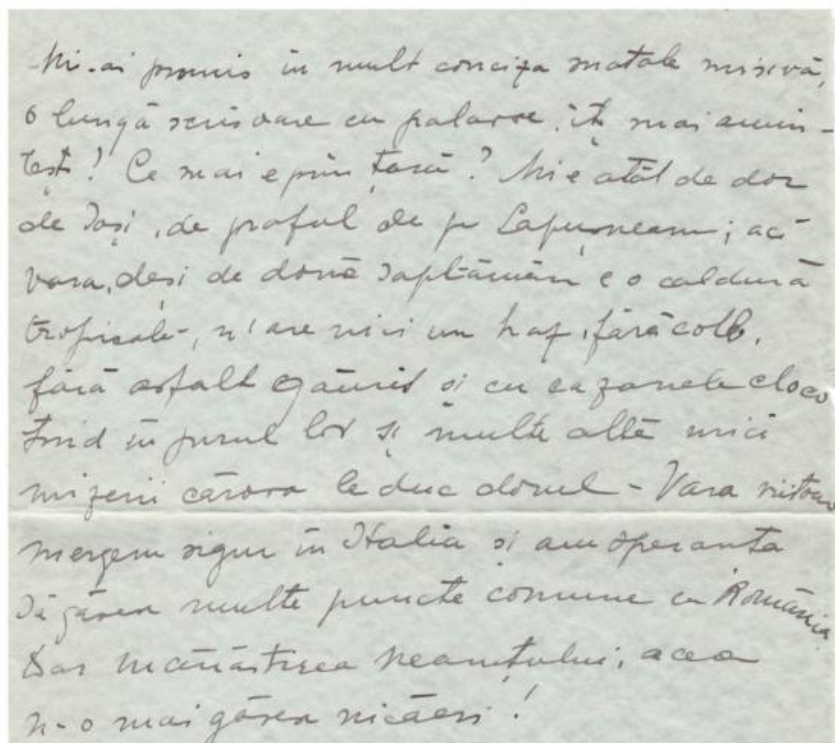 Mi-ai promis în mult concisa matale misivă,
o lungă scrisoare cu palavre, îți mai amin-
tești! Ce mai e prin țară? Mi e atât de dor
de Iași, de praful de pe Lapușneanu; aci
vara, deși de două saptămâni e o caldură
tropicală -, n'are nici un haz, fără colb,
fără asfalt găurit și cu cazanele cloco
tind în jurul lor și multe alte mici
mizerii cărora le duc dorul - Vara viitoare
mergem sigur în Italia si am speranta
să găsesc multe puncte comune cu România.
Dar Mănăstirea Neamțului, aceea
n-o mai găsesc nicăeri!